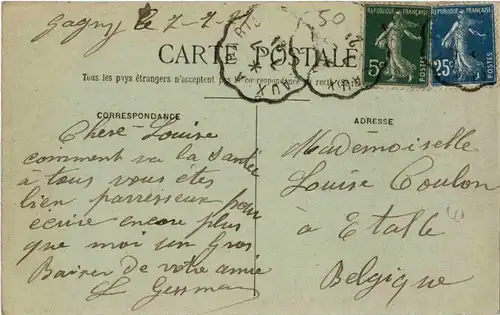 Gagny le 7-2-
50
RÉPUBLIQUE FRANÇAISE
RÉPUBLIQUE FRANÇAISE
5c
POSTES
25c
POSTES
CARTE POSTALE
Tous les pays étrangers n'acceptent pas la correspondance au recto
CORRESPONDANCE
ADRESSE
Chere Louise
comment va la Santée
à tous vous étes
bien parresseux pour
écrire encore plus
que moi un Gros
Baiser de votre amie
Mademoiselle
Louise Coulon
à Etalle
Belgique